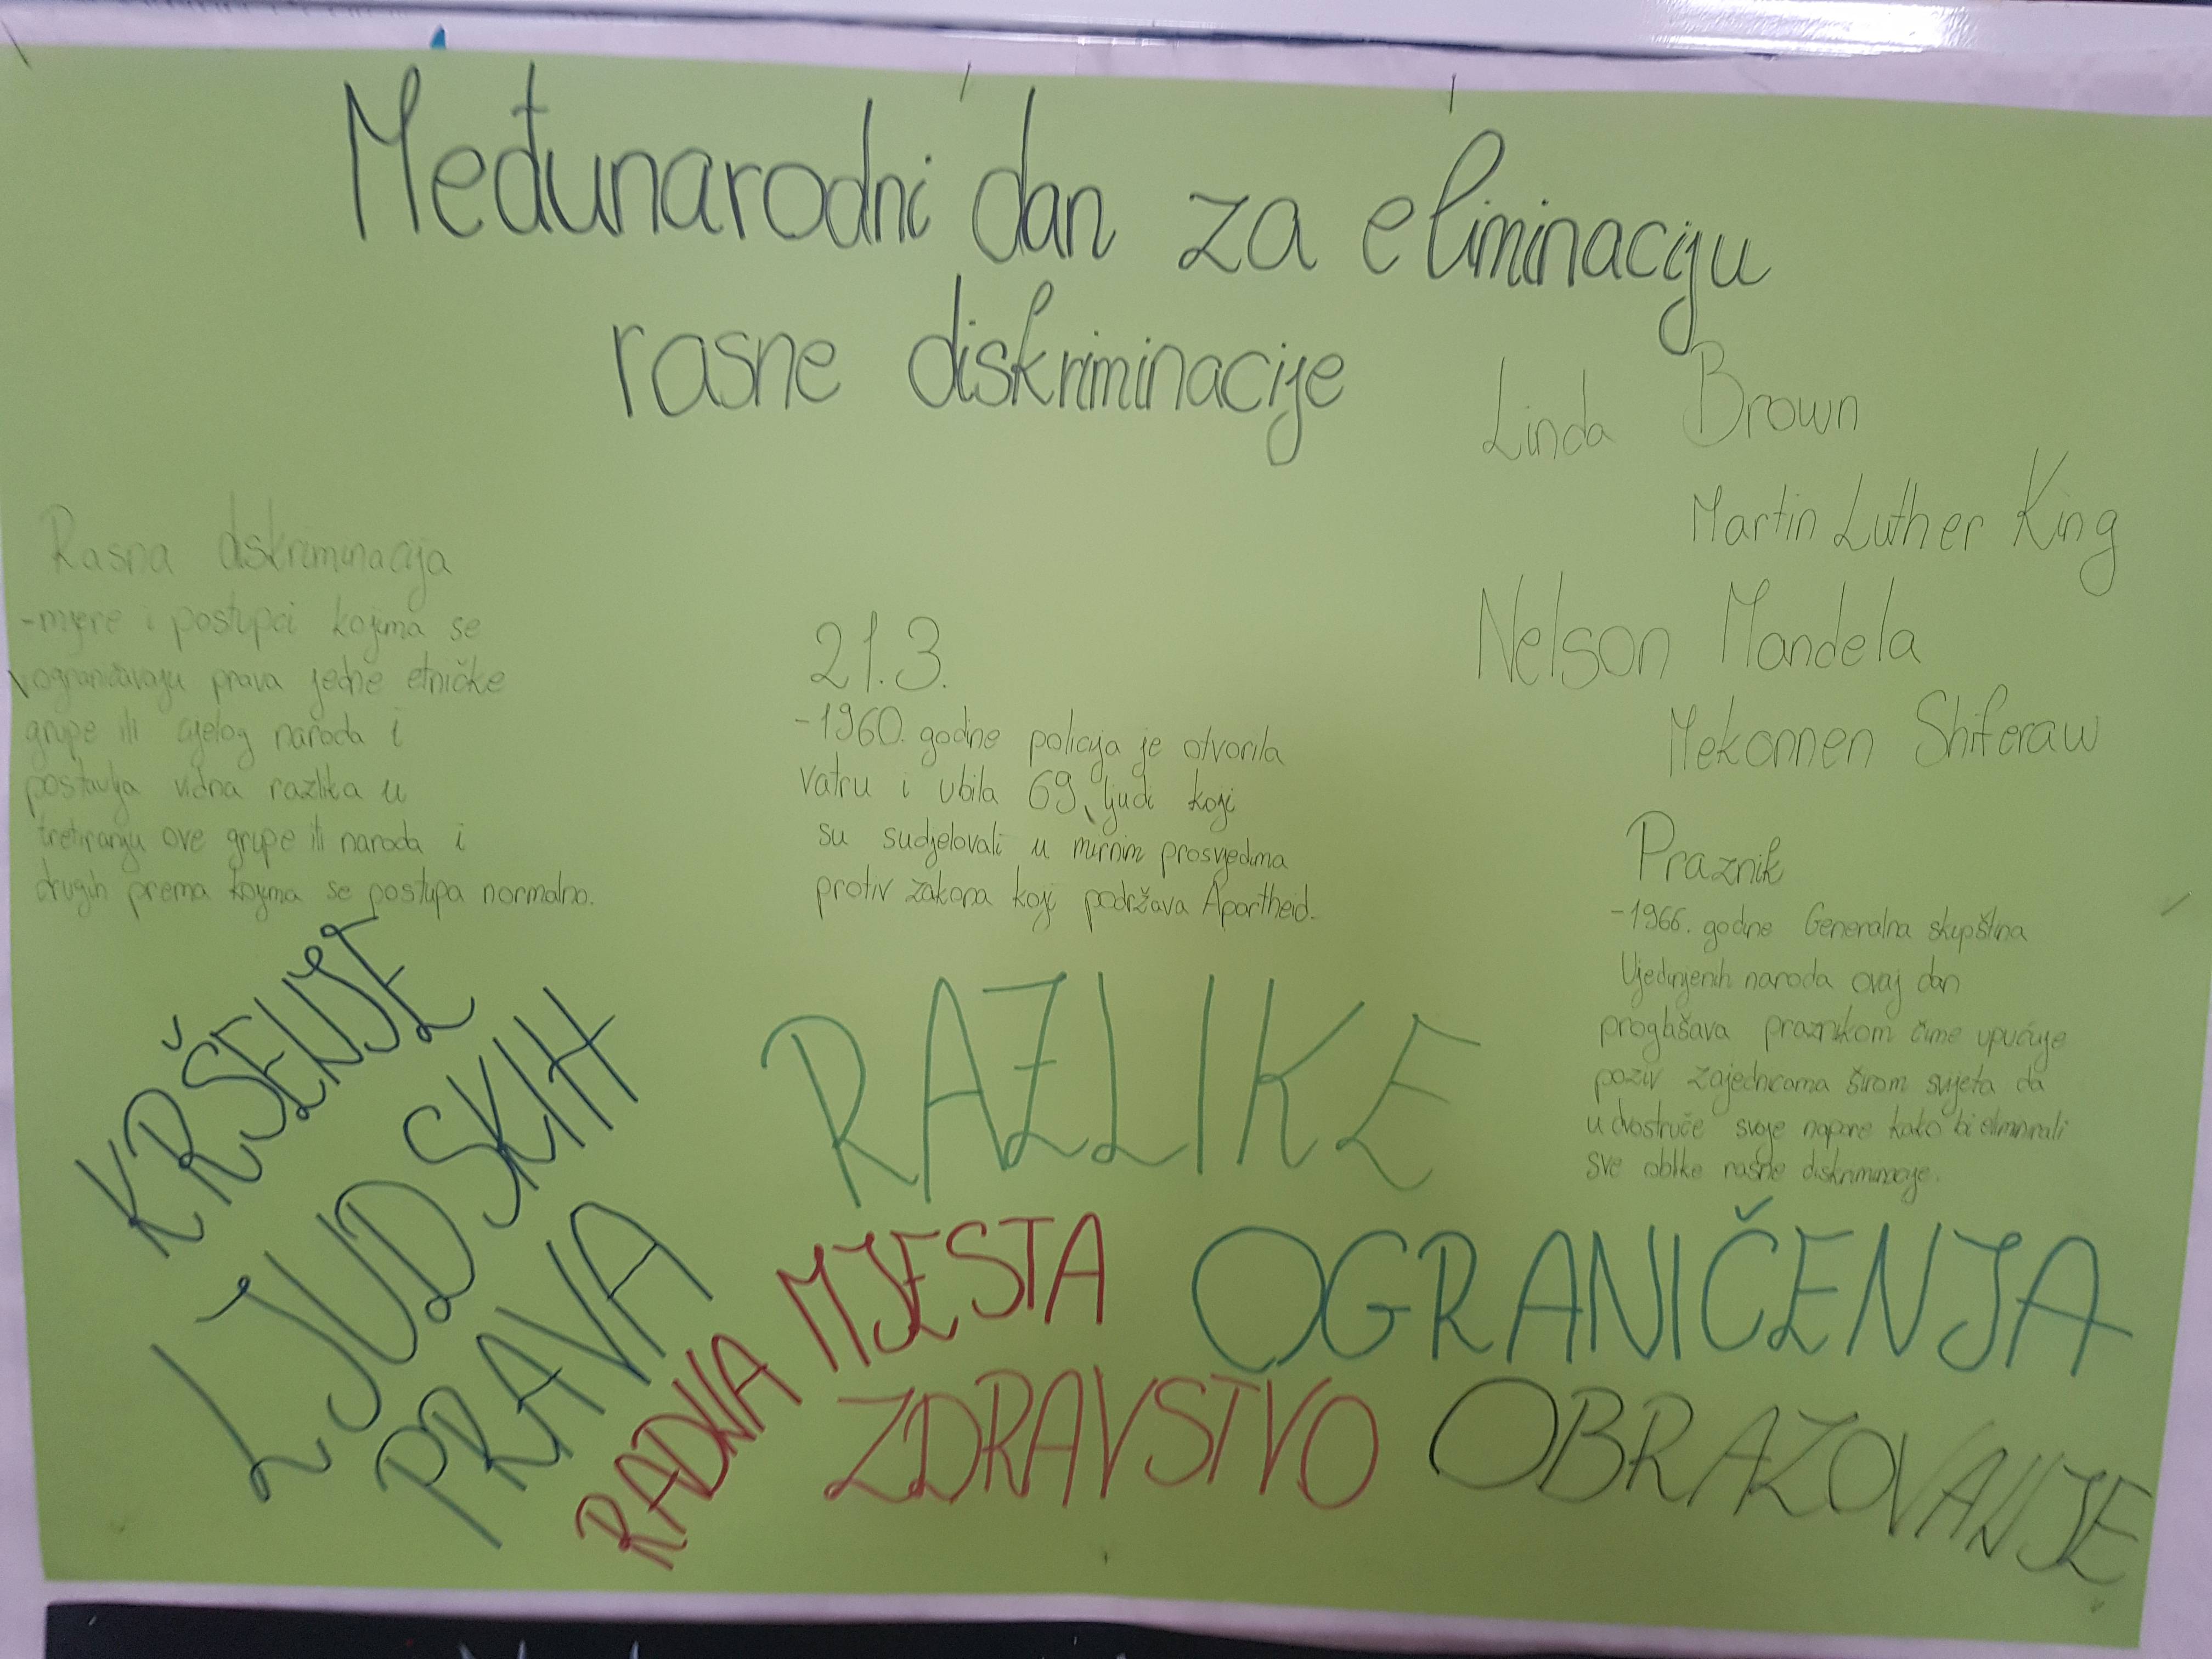 Međunarodni dan za eliminaciju
rasne diskriminacije
Linda Brown
Martin Luther King
Nelson Mandela
Mekonnen Shiferaw
Rasna diskriminacija
-mjere i postupci kojima se
ograničavaju prava jedne etničke
grupe ili cijelog naroda i
postavlja vidna razlika u
tretiranju ove grupe ili naroda i
drugih prema kojima se postupa normalno.
21.3.
-1960. godine policija je otvorila
vatru i ubila 69 ljudi koji
su sudjelovali u mirnim prosvjedima
protiv zakona koji podržava Apartheid.
Praznik
-1966. godine Generalna skupština
Ujedinjenih naroda ovaj dan
proglašava praznikom čime upućuje
poziv zajednicama širom svijeta da
udvostruče svoje napore kako bi eliminirali
sve oblike rasne diskriminacije.
KRŠENJE
LJUDSKIH
PRAVA
RAZLIKE
RADNA MJESTA
OGRANIČENJA
ZDRAVSTVO
OBRAZOVANJE